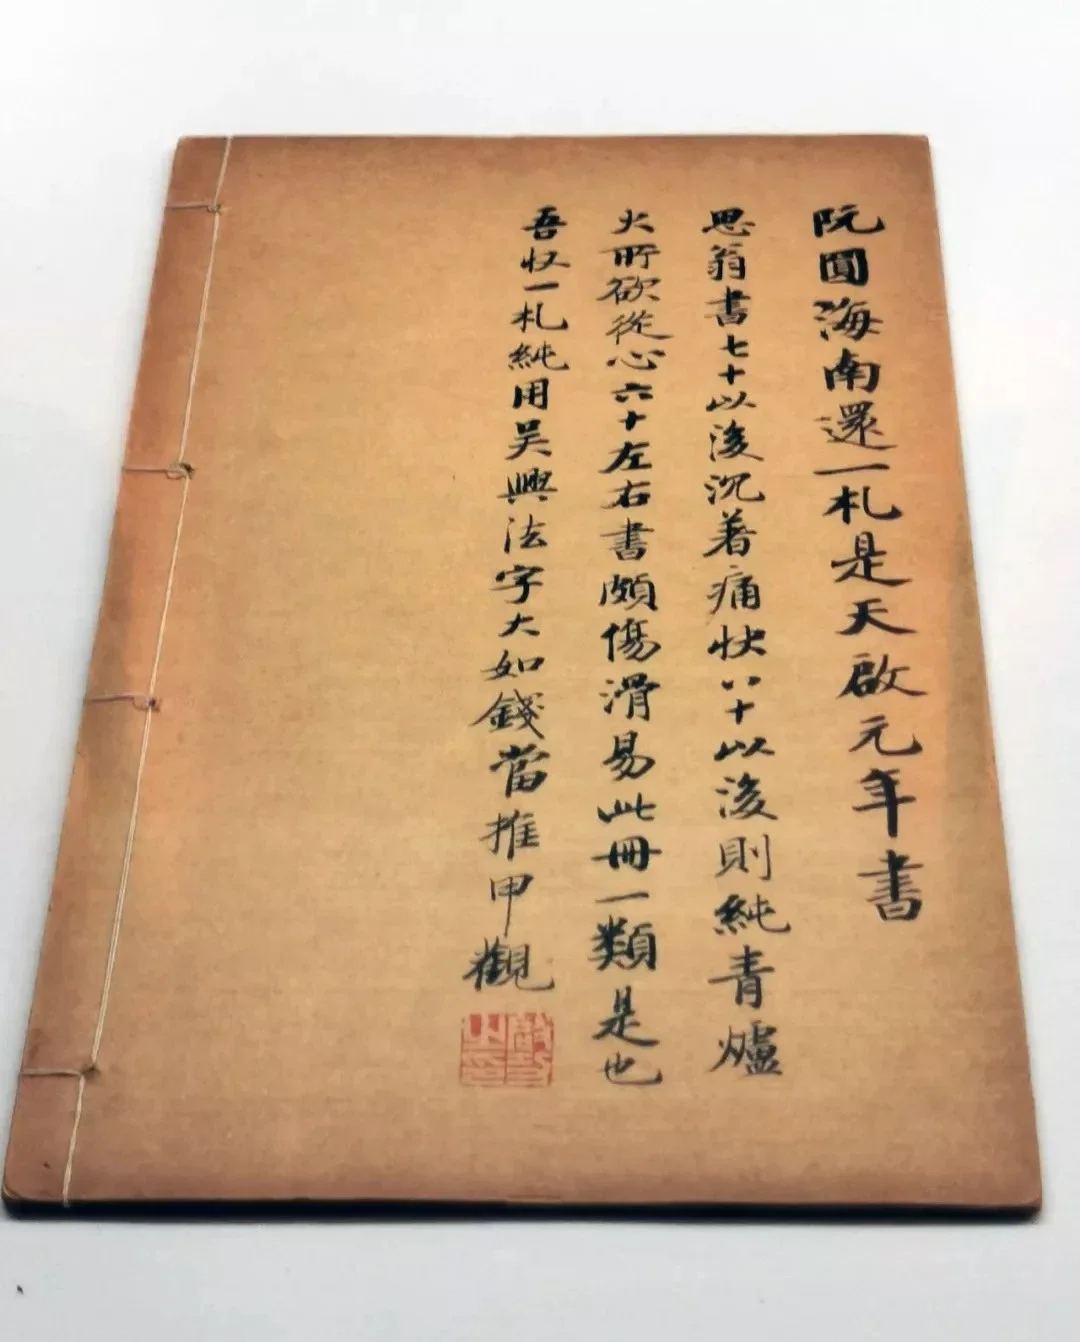 阮圓海南還一札是天啟元年書
思翁書七十以後沉著痛快八十以後則純青爐
火所欲從心六十左右書頗傷滑易此冊一類是也
吾収一札純用吴興法字大如錢當推甲觀